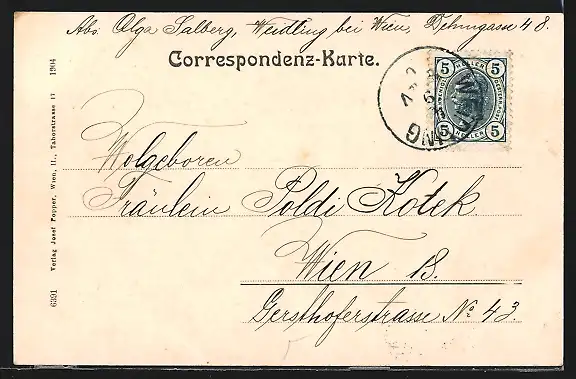 Abs. Olga Salberg, Weidling bei Wien, Dehmgasse 48.
Correspondenz-Karte.
5 HELLER 5
5 HELLER 5
WEIDLING
Wolgeboren
Fräulein Poldi Kotek
Wien 18.
Gersthoferstrasse No. 43.
6391 Verlag Josef Popper, Wien, II., Taborstrasse 17 1904